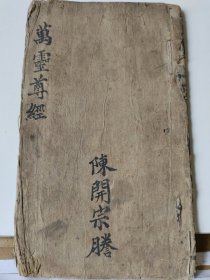 萬靈尊經
陳開宗騰